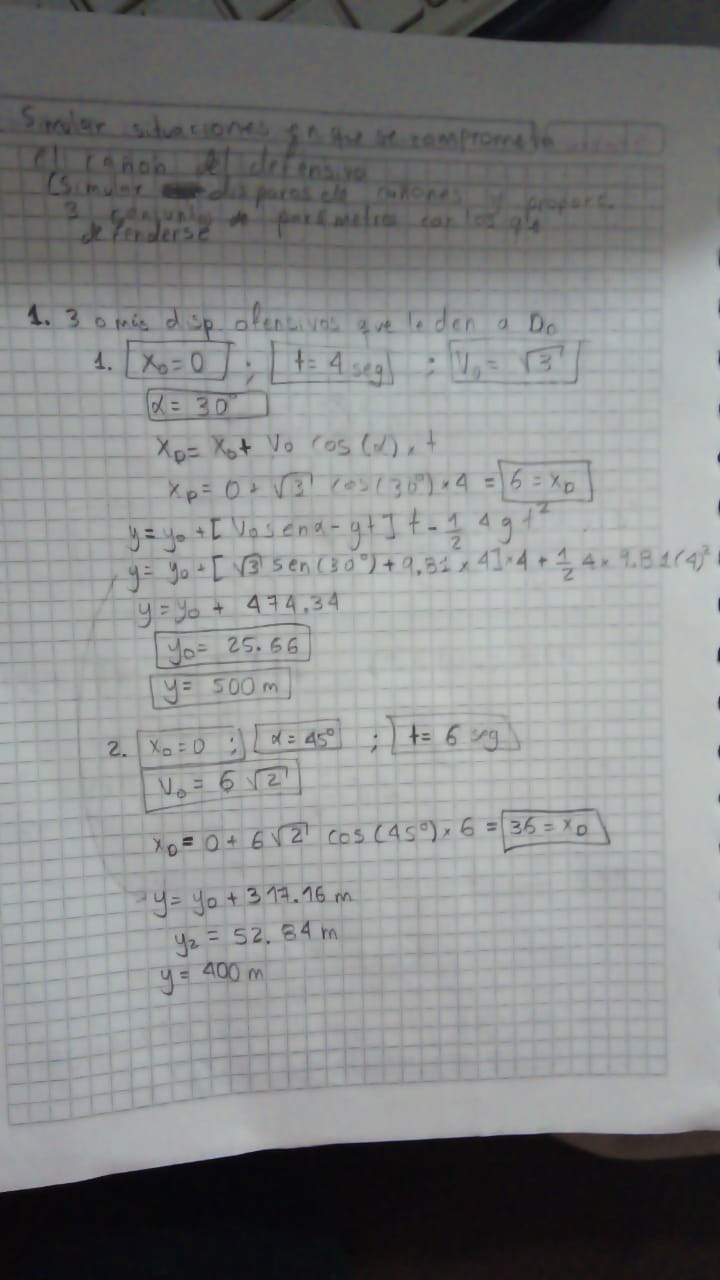 Simular situaciones en que se comprometa
el cañon del defensivo
(Simular disparos de cañones y propore
3 conjuntos de parámetros con los que
defenderse
1. 3 o más disp ofensivos que le den a D0
1. X₀=0 ; t= 4 seg ; V₀= √3
α= 30°
X_D= X₀+ V₀ cos(α) × t
X_D= 0 + √3 cos(30°)×4 = 6 = X_D
y= y₀ +[ V₀ sen α - gt ] t - 1/2 4 g t²
y= y₀ +[ √3 sen(30°)+ 9.81 × 4]×4 + 1/2 4× 9.81(4)²
y= y₀ + 474.34
y₀= 25.66
y= 500 m
2. X₀=0 ; α= 45° ; t= 6 seg
V₀= 6 √2
X_D= 0+ 6√2 cos(45°)× 6 = 36 = X_D
y= y₀ + 317.16 m
y₂ = 52.84 m
y= 400 m